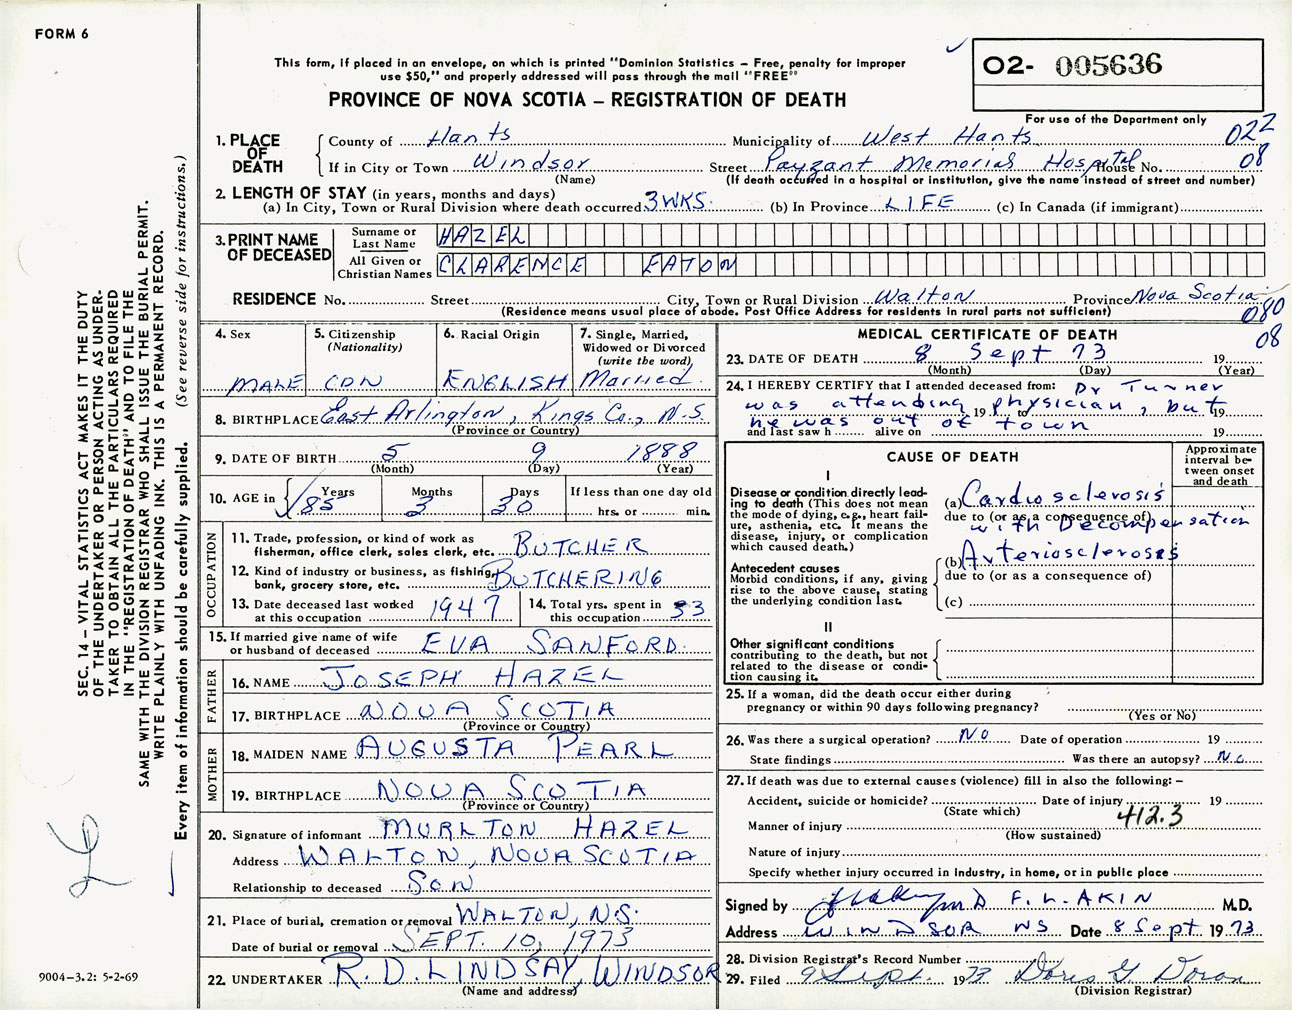 FORM 6
This form, if placed in an envelope, on which is printed "Dominion Statistics – Free, penalty for improper
use $50," and properly addressed will pass through the mail "FREE"
PROVINCE OF NOVA SCOTIA – REGISTRATION OF DEATH
O2- 005636
For use of the Department only
022
08
1. PLACE OF DEATH
County of Hants Municipality of West Hants
If in City or Town Windsor Street Payzant Memorial Hospital House No.
(Name) (If death occurred in a hospital or institution, give the name instead of street and number)
2. LENGTH OF STAY (in years, months and days)
(a) In City, Town or Rural Division where death occurred 3 WKS. (b) In Province LIFE (c) In Canada (if immigrant)
3. PRINT NAME OF DECEASED
Surname or Last Name HAZEL
All Given or Christian Names CLARENCE EATON
RESIDENCE No. Street City, Town or Rural Division Walton Province Nova Scotia
(Residence means usual place of abode. Post Office Address for residents in rural parts not sufficient)
080
08
4. Sex MALE
5. Citizenship (Nationality) CDN
6. Racial Origin ENGLISH
7. Single, Married, Widowed or Divorced (write the word) Married.
8. BIRTHPLACE East Arlington, Kings Co., N.S.
(Province or Country)
9. DATE OF BIRTH 5 9 1888
(Month) (Day) (Year)
10. AGE in Years 85 Months 3 Days 30 If less than one day old
hrs. or min.
OCCUPATION
11. Trade, profession, or kind of work as
fisherman, office clerk, sales clerk, etc. BUTCHER
12. Kind of industry or business, as fishing,
bank, grocery store, etc. BUTCHERING
13. Date deceased last worked
at this occupation 1947
14. Total yrs. spent in
this occupation 33
15. If married give name of wife
or husband of deceased EVA SANFORD.
FATHER
16. NAME JOSEPH HAZEL
17. BIRTHPLACE NOVA SCOTIA
(Province or Country)
MOTHER
18. MAIDEN NAME AUGUSTA PEARL
19. BIRTHPLACE NOVA SCOTIA
(Province or Country)
20. Signature of informant MURLTON HAZEL
Address WALTON, NOVA SCOTIA
Relationship to deceased SON
21. Place of burial, cremation or removal WALTON, N.S.
Date of burial or removal SEPT. 10, 1973
22. UNDERTAKER R. D. LINDSAY, WINDSOR
(Name and address)
MEDICAL CERTIFICATE OF DEATH
23. DATE OF DEATH 8 Sept 73 19
(Month) (Day) (Year)
24. I HEREBY CERTIFY that I attended deceased from: Dr Turner
was attending physician, but
19 to 19
he was out of town
and last saw h alive on 19
CAUSE OF DEATH
Approximate interval between onset and death
I
Disease or condition directly leading to death (This does not mean the mode of dying, e.g., heart failure, asthenia, etc. It means the disease, injury, or complication which caused death.)
(a) Cardiosclerosis
due to (or as a consequence of)
with Decompensation
Antecedent causes
Morbid conditions, if any, giving rise to the above cause, stating the underlying condition last.
(b) Arteriosclerosis
due to (or as a consequence of)
(c)
II
Other significant conditions
contributing to the death, but not related to the disease or condition causing it.
25. If a woman, did the death occur either during
pregnancy or within 90 days following pregnancy?
(Yes or No)
26. Was there a surgical operation? NO Date of operation 19
State findings Was there an autopsy? No
27. If death was due to external causes (violence) fill in also the following: –
Accident, suicide or homicide? Date of injury 19
(State which)
412.3
Manner of injury
(How sustained)
Nature of injury
Specify whether injury occurred in industry, in home, or in public place
Signed by MD F. L. AKIN M.D.
Address WINDSOR NS Date 8 Sept 1973
28. Division Registrar's Record Number
29. Filed 9 Sept. 1973 Doris G. Doran
(Division Registrar)
SEC. 14 – VITAL STATISTICS ACT MAKES IT THE DUTY
OF THE UNDERTAKER OR PERSON ACTING AS UNDER-
TAKER TO OBTAIN ALL THE PARTICULARS REQUIRED
IN THE "REGISTRATION OF DEATH" AND TO FILE THE
SAME WITH THE DIVISION REGISTRAR WHO SHALL ISSUE THE BURIAL PERMIT.
WRITE PLAINLY WITH UNFADING INK. THIS IS A PERMANENT RECORD.
Every item of information should be carefully supplied. (See reverse side for instructions.)
9004-3.2: 5-2-69